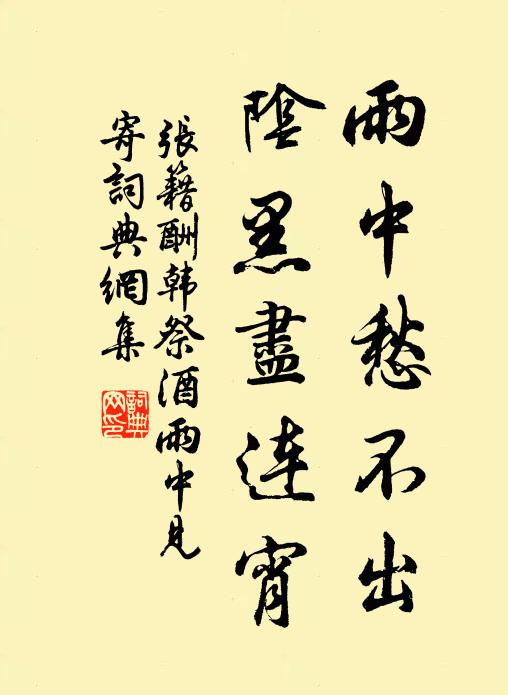 雨中愁不出
陰黑盡连宵
張籍酬韩祭酒雨中見
寄詞典網集
詞典網印